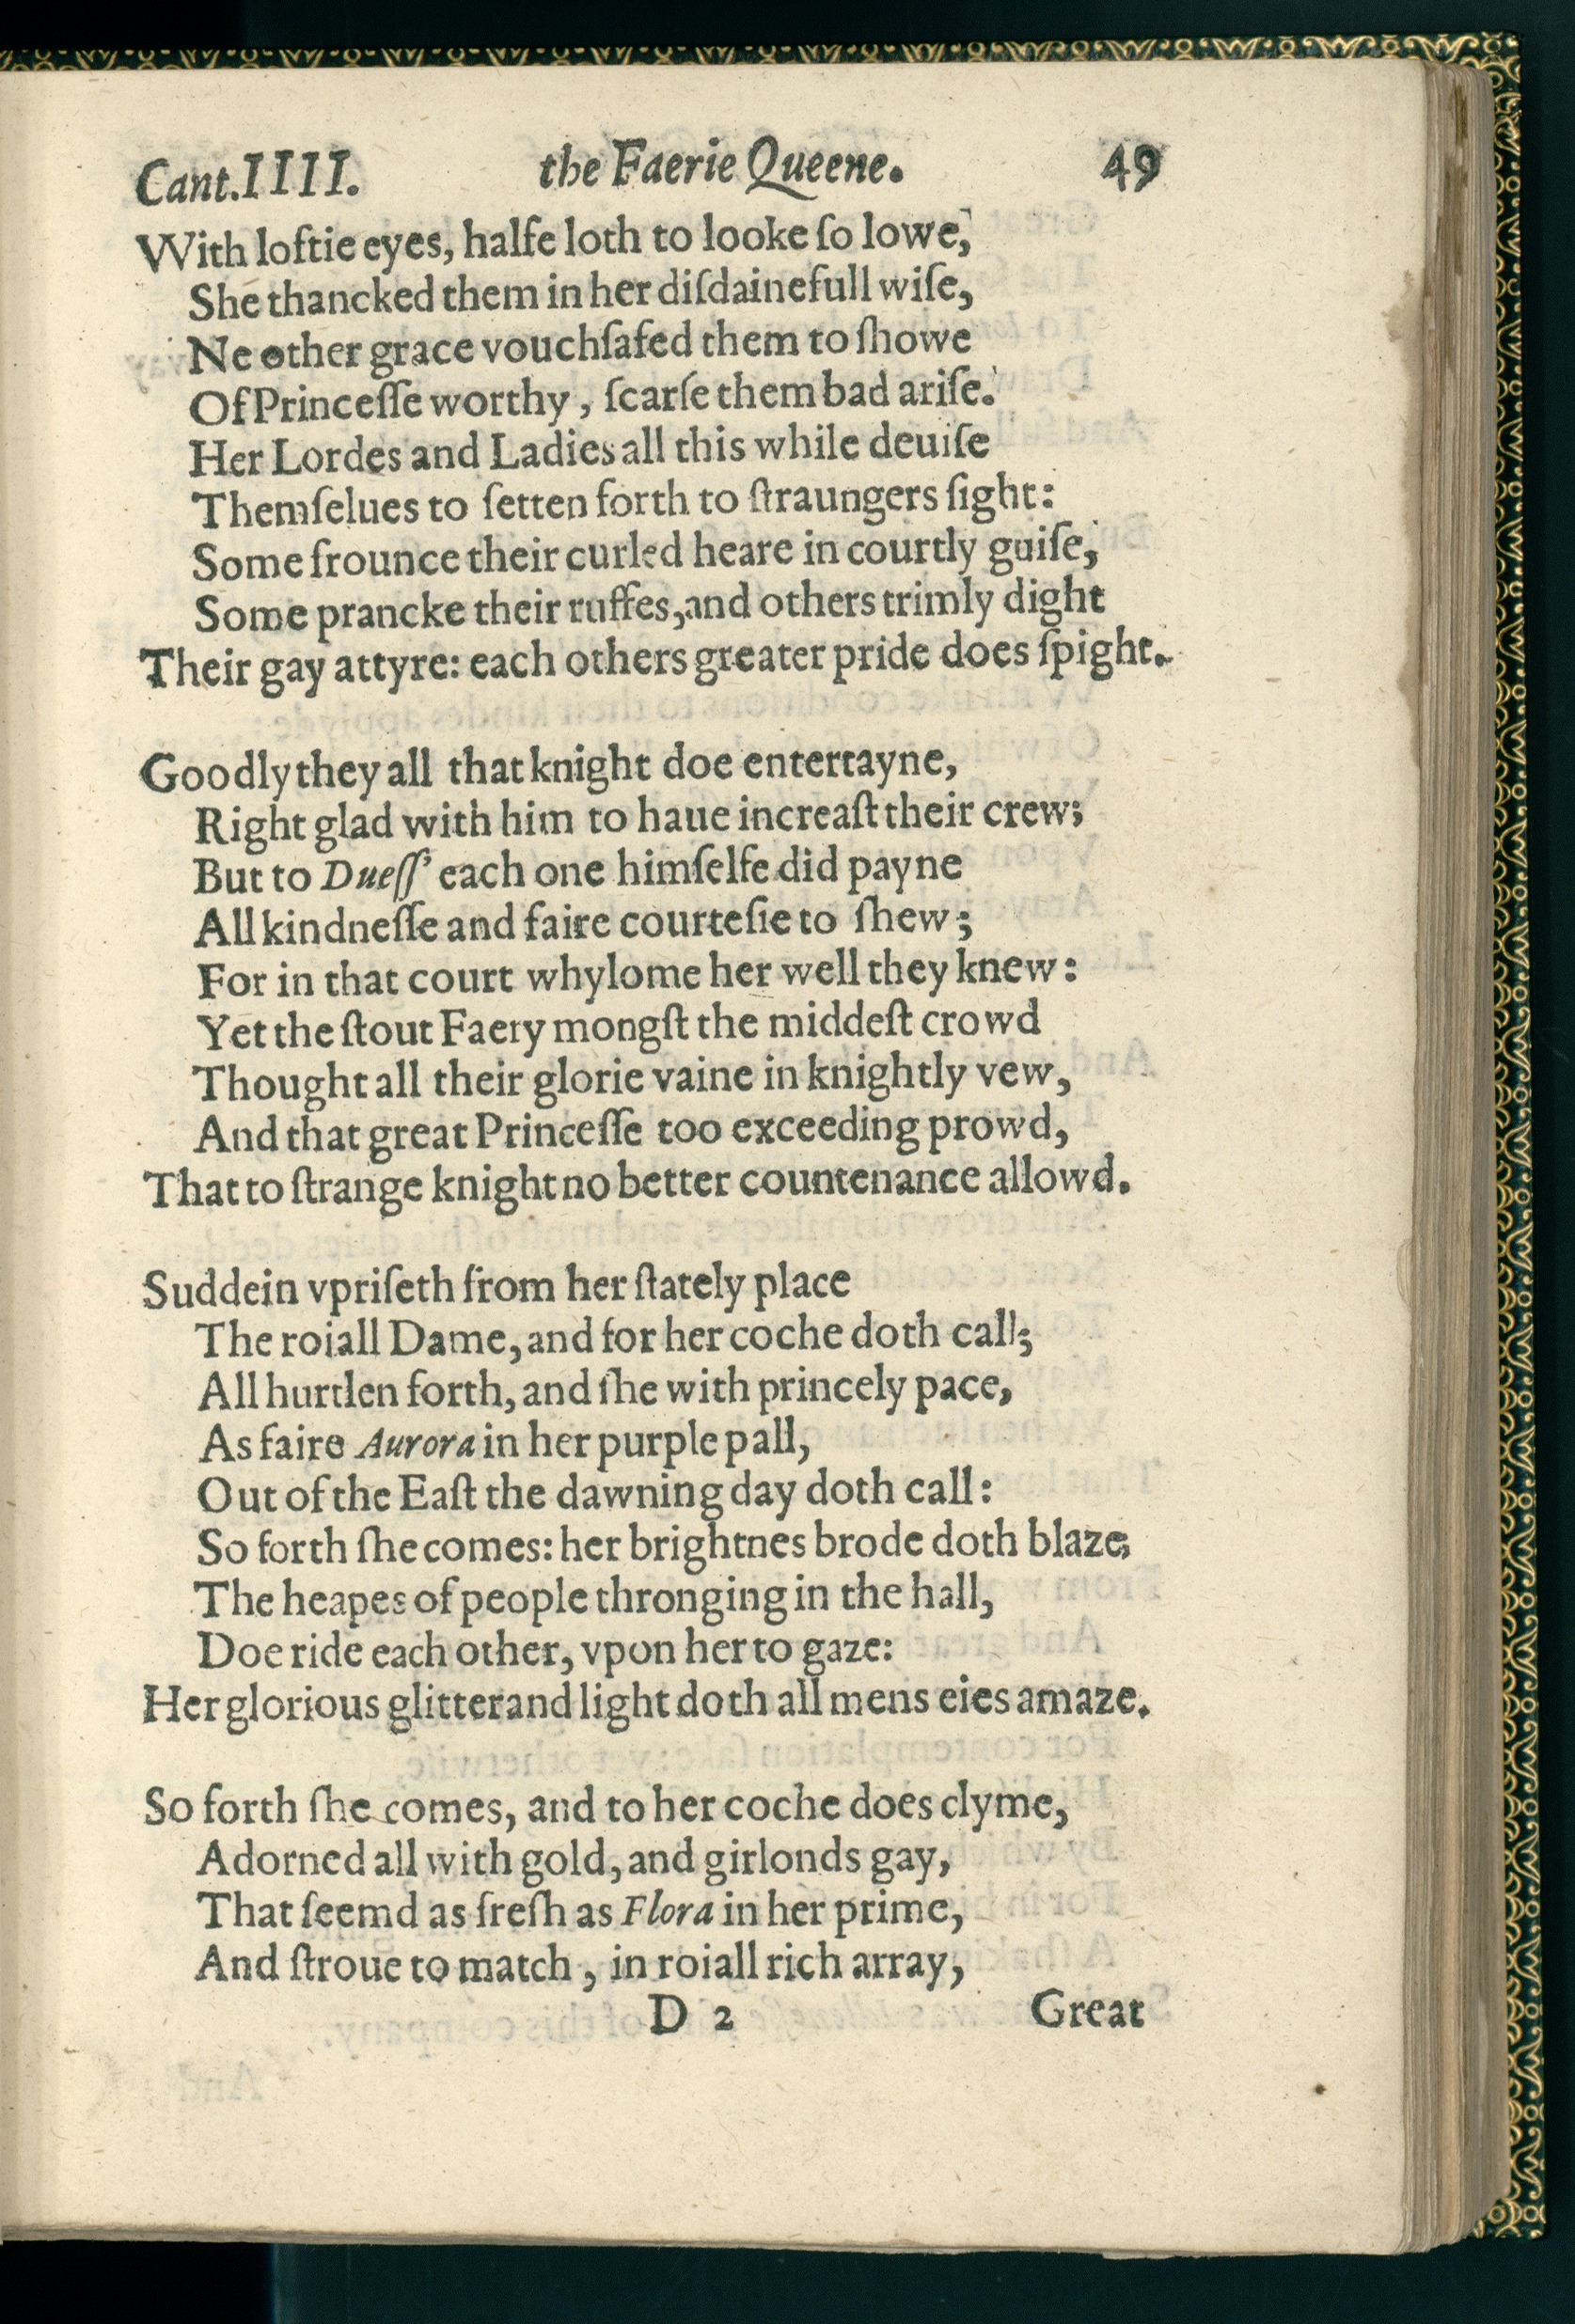 Cant.IIII. the Faerie Queene. 49
With loftie eyes, halfe loth to looke ſo lowe,
She thancked them in her diſdainefull wiſe,
Ne other grace vouchſafed them to ſhowe
Of Princeſſe worthy, ſcarſe them bad ariſe.
Her Lordes and Ladies all this while deuiſe
Themſelues to ſetten forth to ſtraungers ſight:
Some frounce their curled heare in courtly guiſe,
Some prancke their ruffes, and others trimly dight
Their gay attyre: each others greater pride does ſpight.
Goodly they all that knight doe entertayne,
Right glad with him to haue increaſt their crew;
But to Dueſſ' each one himſelfe did payne
All kindneſſe and faire courteſie to ſhew;
For in that court whylome her well they knew:
Yet the ſtout Faery mongſt the middeſt crowd
Thought all their glorie vaine in knightly vew,
And that great Princeſſe too exceeding prowd,
That to ſtrange knight no better countenance allowd.
Suddein vpriſeth from her ſtately place
The roiall Dame, and for her coche doth call;
All hurtlen forth, and ſhe with princely pace,
As faire Aurora in her purple pall,
Out of the Eaſt the dawning day doth call:
So forth ſhe comes: her brightnes brode doth blaze;
The heapes of people thronging in the hall,
Doe ride each other, vpon her to gaze:
Her glorious glitterand light doth all mens eies amaze.
So forth ſhe comes, and to her coche does clyme,
Adorned all with gold, and girlonds gay,
That ſeemd as freſh as Flora in her prime,
And ſtroue to match, in roiall rich array,
D 2 Great